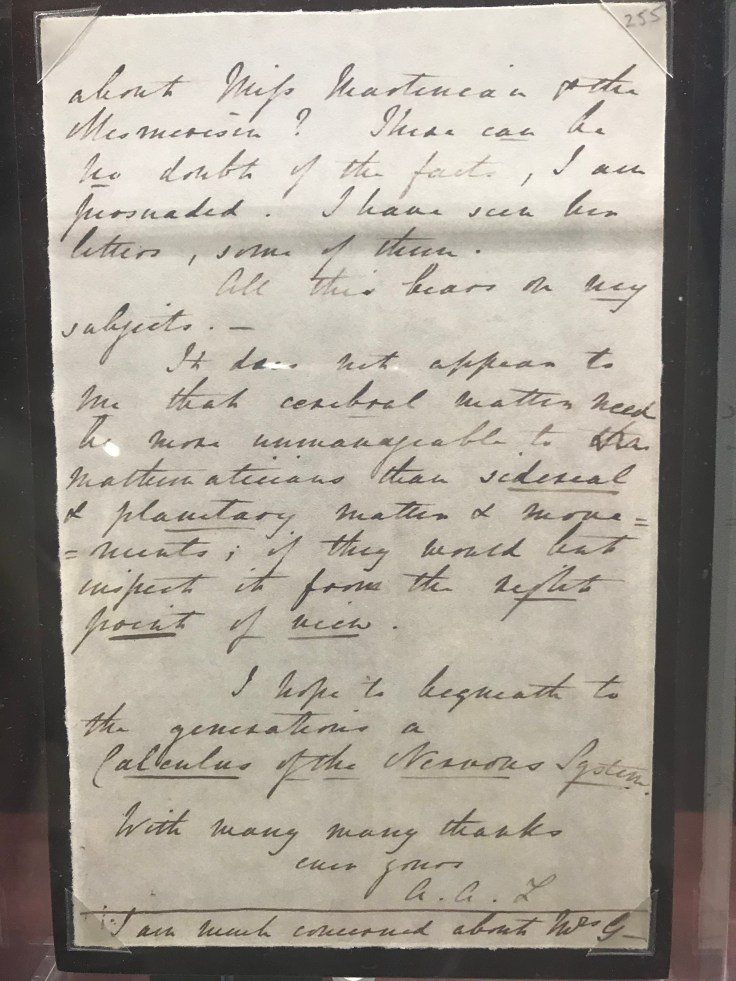 255
about Miss Martineau & the
Mesmerism? There can be
no doubt of the facts, I am
persuaded. I have seen her
letters, some of them.
All this bears on my
subjects. —
It does not appear to
me that cerebral matter need
be more unmanageable to
mathematicians than sidereal
& planetary matter & move=
=ments; if they would but
inspect it from the right
point of view.
I hope to bequeath to
the generations a
Calculus of the Nervous System.
With many many thanks
ever yours
A. A. L
I am much concerned about Mrs G—